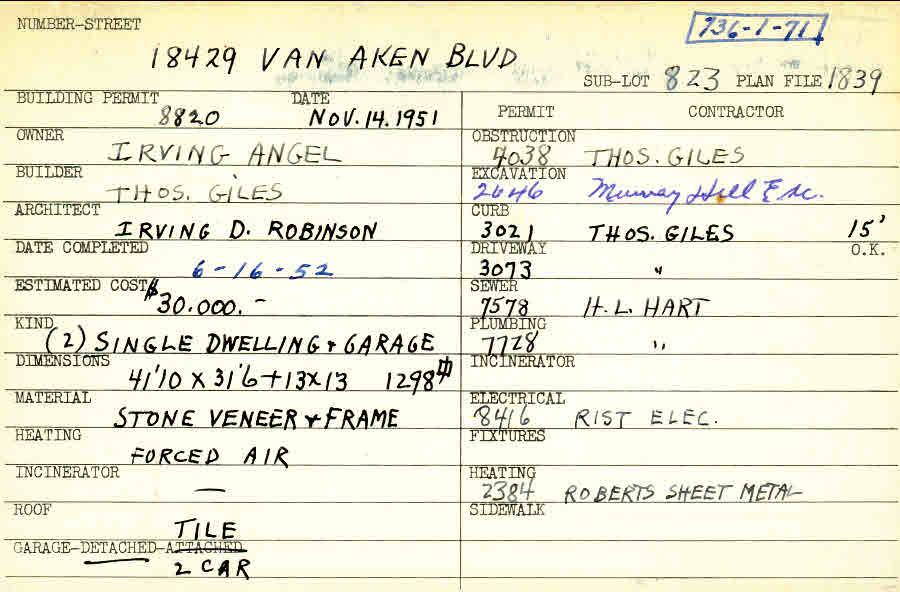 NUMBER-STREET
736-1-71
18429 VAN AKEN BLVD
SUB-LOT 823 PLAN FILE 1839
BUILDING PERMIT DATE
8820 NOV. 14. 1951
OWNER
IRVING ANGEL
BUILDER
THOS. GILES
ARCHITECT
IRVING D. ROBINSON
DATE COMPLETED
6-16-52
ESTIMATED COST
$30.000.-
KIND
(2) SINGLE DWELLING & GARAGE
DIMENSIONS
41'10 X 31'6 + 13 X 13 1298
MATERIAL
STONE VENEER & FRAME
HEATING
FORCED AIR
INCINERATOR
—
ROOF
TILE
GARAGE-DETACHED-ATTACHED
2 CAR
PERMIT CONTRACTOR
OBSTRUCTION
4038 THOS. GILES
EXCAVATION
2646 Murray Hill Exc.
CURB
3021 THOS. GILES 15'
DRIVEWAY O.K.
3073 "
SEWER
7578 H. L. HART
PLUMBING
7728 "
INCINERATOR
ELECTRICAL
8416 RIST ELEC.
FIXTURES
HEATING
2384 ROBERTS SHEET METAL
SIDEWALK